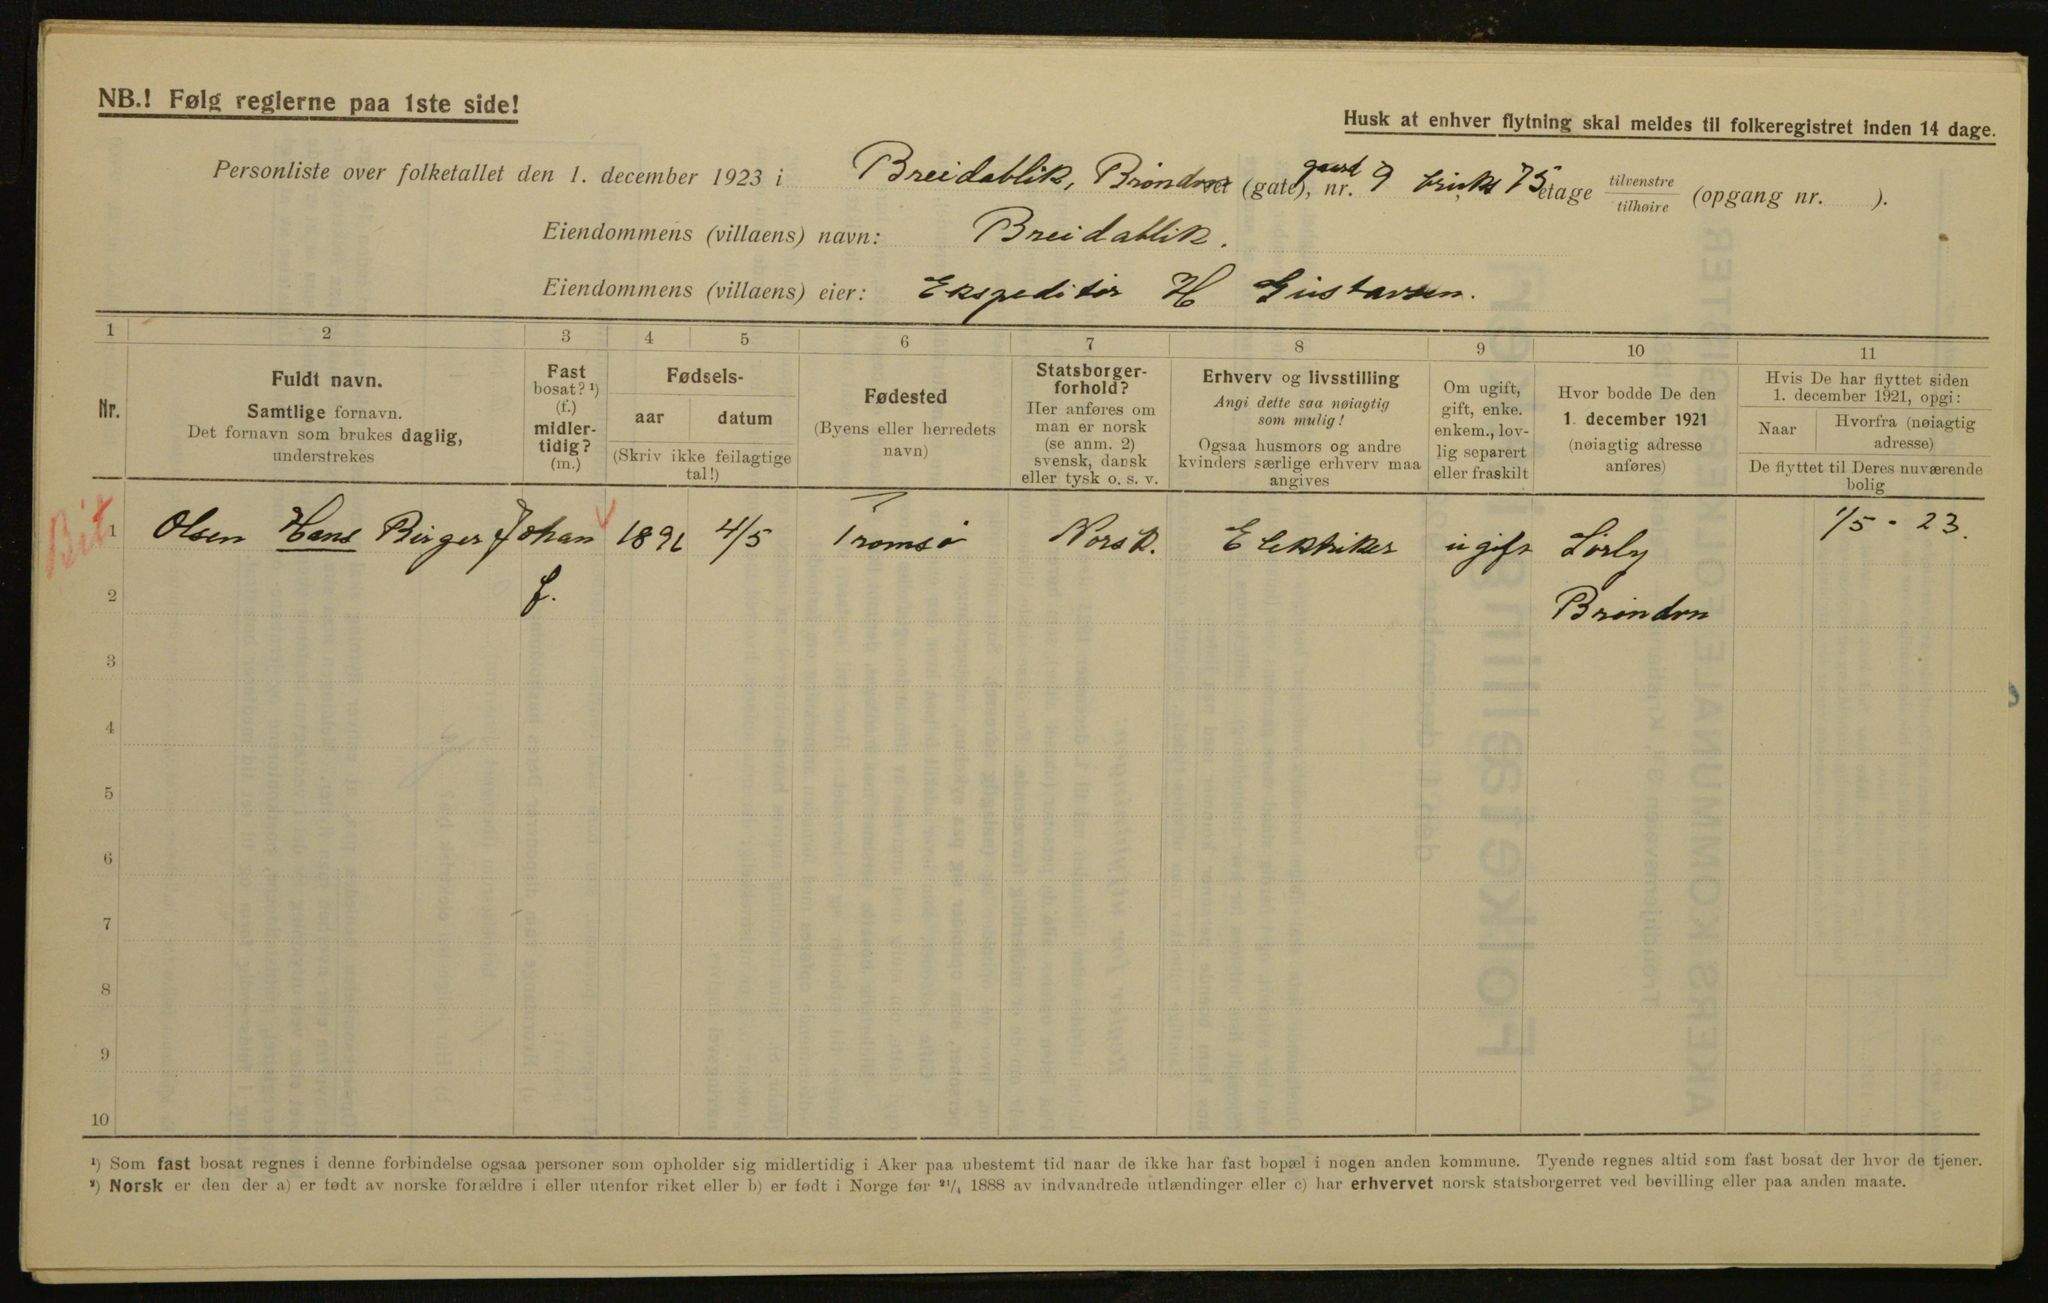 NB.! Følg reglerne paa 1ste side!
Husk at enhver flytning skal meldes til folkeregistret inden 14 dage.
Personliste over folketallet den 1. december 1923 i Breidablik, (gate), nr. gaard 9 bruks 75 etage tilvenstre tilhøire (opgang nr. ).
Eiendommens (villaens) navn: Breidablik.
Eiendommens (villaens) eier: Ekspeditør H Gustavsen.
1 2 3 4 5 6 7 8 9 10 11
Nr.
Fuldt navn.
Samtlige fornavn.
Det fornavn som brukes daglig,
understrekes
Fast
bosat? ¹)
(f.)
midler-
tidig?
(m.)
Fødsels-
aar datum
(Skriv ikke feilagtige
tal!)
Fødested
(Byens eller herredets
navn)
Statsborger-
forhold?
Her anføres om
man er norsk
(se anm. 2)
svensk, dansk
eller tysk o. s. v.
Erhverv og livsstilling
Angi dette saa nøiagtig
som mulig!
Ogsaa husmors og andre
kvinders særlige erhverv maa
angives
Om ugift,
gift, enke.
enkem., lov-
lig separert
eller fraskilt
Hvor bodde De den
1. december 1921
(nøiagtig adresse
anføres)
Hvis De har flyttet siden
1. december 1921, opgi:
Naar Hvorfra (nøiagtig
adresse)
De flyttet til Deres nuværende
bolig
Bit
1 Olsen Hans Birger Johan 1891 4/5 Tromsø Norsk. Elektriker ugift 1/5 - 23.
2 f.
3
4
5
6
7
8
9
10
¹) Som fast bosat regnes i denne forbindelse ogsaa personer som opholder sig midlertidig i Aker paa ubestemt tid naar de ikke har fast bopæl i nogen anden kommune. Tyende regnes altid som fast bosat der hvor de tjener.
²) Norsk er den der a) er født av norske forældre i eller utenfor riket eller b) er født i Norge før ²¹/₄ 1888 av indvandrede utlændinger eller c) har erhvervet norsk statsborgerret ved bevilling eller paa anden maate.